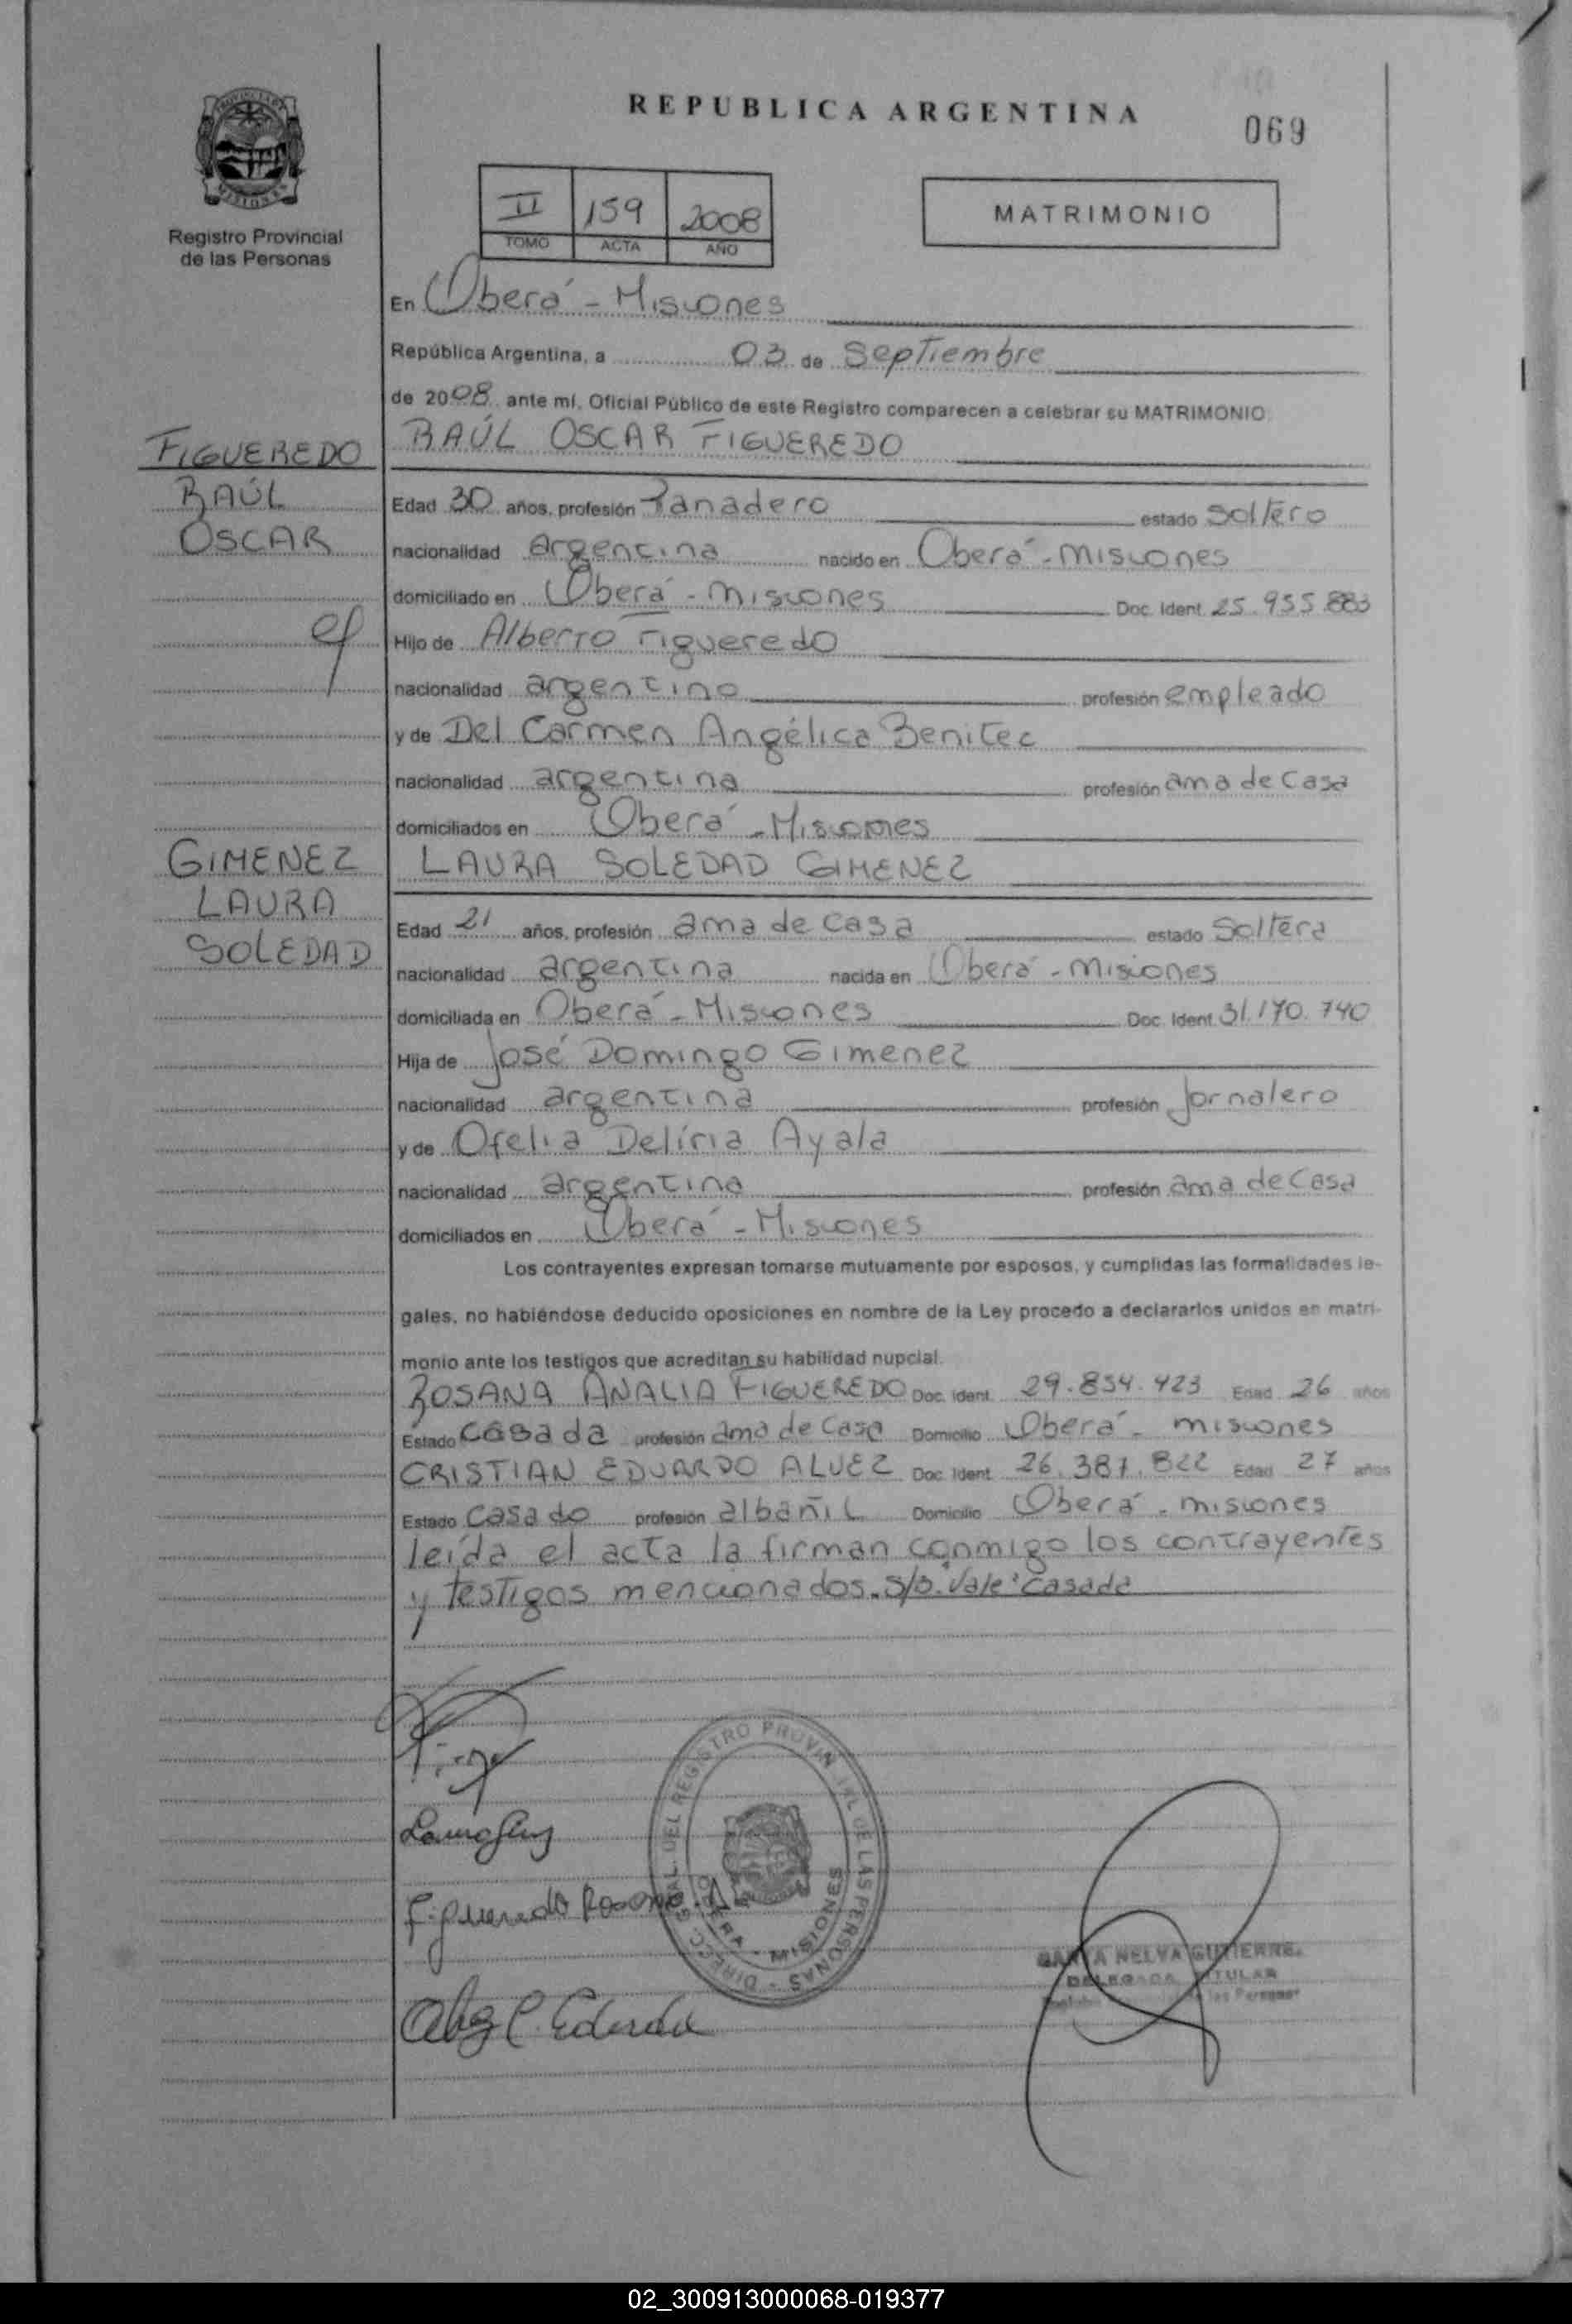 REPUBLICA ARGENTINA
069
Registro Provincial
de las Personas
II 159 2008
TOMO ACTA AÑO
MATRIMONIO
En Oberá - Misiones
República Argentina, a 03 de Septiembre
de 2008 ante mí, Oficial Público de este Registro comparecen a celebrar su MATRIMONIO
FIGUEREDO
RAÚL
OSCAR
RAÚL OSCAR FIGUEREDO
Edad 30 años, profesión Panadero estado Soltero
nacionalidad argentina nacido en Oberá - Misiones
domiciliado en Oberá - Misiones Doc. Ident. 25.955.883
Hijo de Alberto Figueredo
nacionalidad argentino profesión empleado
y de Del Carmen Angélica Benitez
nacionalidad argentina profesión ama de Casa
domiciliados en Oberá - Misiones
GIMENEZ
LAURA
SOLEDAD
LAURA SOLEDAD GIMENEZ
Edad 21 años, profesión ama de casa estado Soltera
nacionalidad argentina nacida en Oberá - Misiones
domiciliada en Oberá - Misiones Doc. Ident. 31.170.740
Hija de José Domingo Gimenez
nacionalidad argentina profesión Jornalero
y de Ofelia Deliria Ayala
nacionalidad argentina profesión ama de Casa
domiciliados en Oberá - Misiones
Los contrayentes expresan tomarse mutuamente por esposos, y cumplidas las formalidades le-
gales, no habiéndose deducido oposiciones en nombre de la Ley procedo a declararlos unidos en matri-
monio ante los testigos que acreditan su habilidad nupcial.
ROSANA ANALIA FIGUEREDO Doc. Ident. 29.834.423 Edad 26 años
Estado Casada profesión ama de Casa Domicilio Oberá - misiones
CRISTIAN EDUARDO ALVEZ Doc. Ident. 26.387.822 Edad 27 años
Estado Casado profesión albañil Domicilio Oberá - misiones
leída el acta la firman conmigo los contrayentes
y testigos mencionados. S/b: Vale: Casada
Figueredo Rosana A
DIRECC. GRAL. DEL REGISTRO PROVINCIAL DE LAS PERSONAS
OBERA - MISIONES
NELVA GUTIERRE
DELEGADA TITULAR
de las Personas
02_300913000068-019377